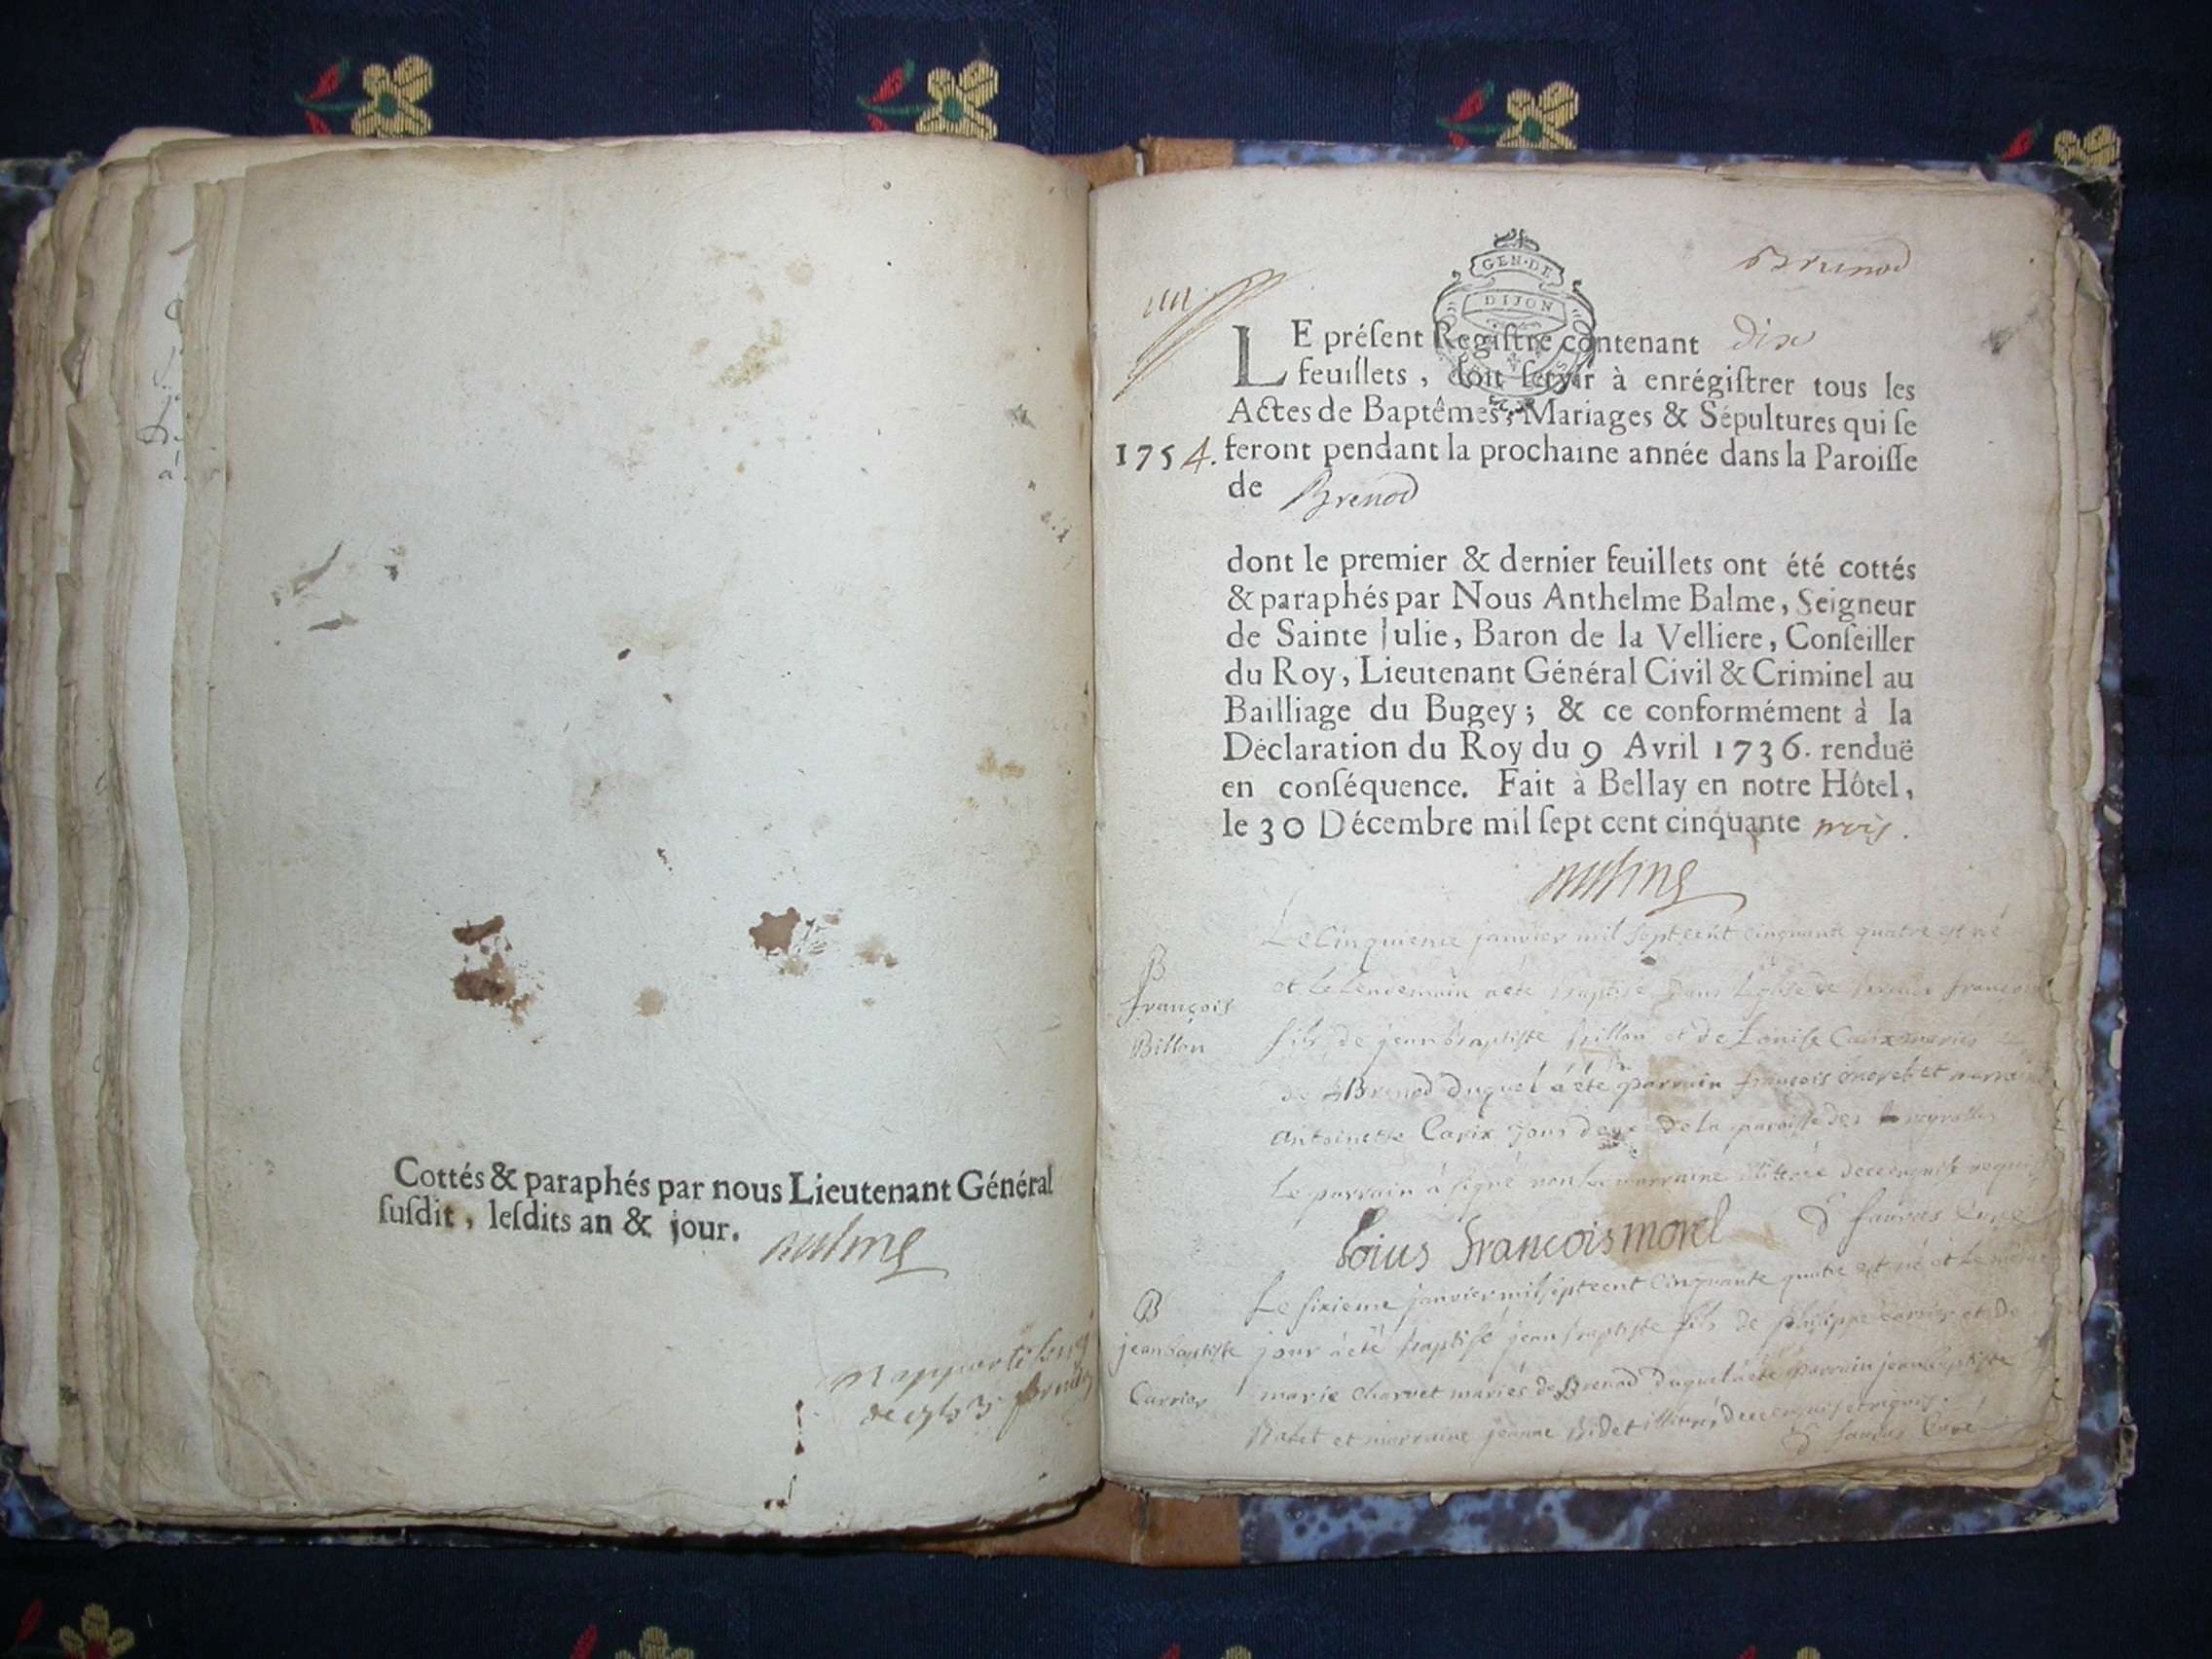 Cottés & paraphés par nous Lieutenant Général
ſuſdit, leſdits an & jour.
Brenod
GEN·DE
DIJON
LE préſent Regiſtre contenant dix
feuillets, doit ſervir à enrégiſtrer tous les
Actes de Baptêmes, Mariages & Sépultures qui ſe
1754. feront pendant la prochaine année dans la Paroiſſe
de Brenod
dont le premier & dernier feuillets ont été cottés
& paraphés par Nous Anthelme Balme, Seigneur
de Sainte Julie, Baron de la Velliere, Conſeiller
du Roy, Lieutenant Général Civil & Criminel au
Bailliage du Bugey; & ce conformément à la
Déclaration du Roy du 9 Avril 1736. renduë
en conſéquence. Fait à Bellay en notre Hôtel,
le 30 Décembre mil ſept cent cinquante trois.
Le Cinquieme janvier mil septcent cinquante quatre est né
B
françois
Billon
et le lendemain a été baptisé dans l'eglise de françois
fils de jean baptiste Billon et de Louise Carix mariés
de Brenod duquel a été parrain françois morel et marraine
antoinette Carix tous deux de la paroisse des
Le parrain a signé non la marraine illitérée de ce enquise
loius francois morel faivas Curé
B
jean baptiste
Carrier
Le sixieme janvier mil septcent Cinquante quatre est né et le même
jour a été baptisé jean baptiste fils de philippe Carrier et de
marie Charvet mariés de Brenod duquel a été parrain jean baptiste
et marraine jeanne Bidet illitérés de ce enquis et requis.
faivas Curé